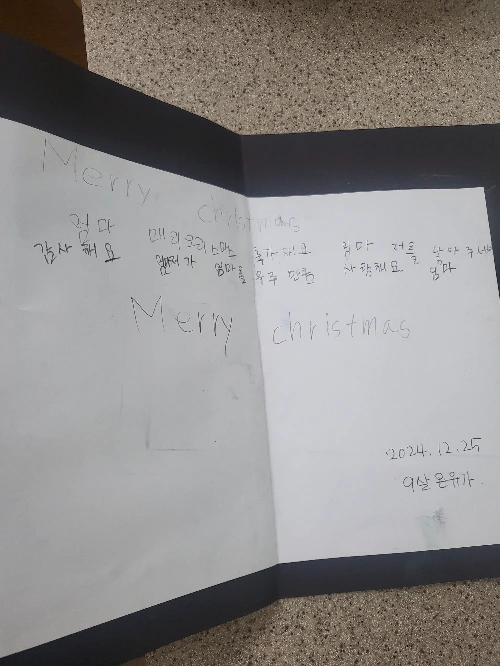 Merry christmas
엄마 메리크리스마스 축하해요 엄마 저를 낳아주셔서
감사해요 제가 엄마를 우주 만큼 사랑해요 엄마
Merry christmas
2024.12.25
9살 온유가